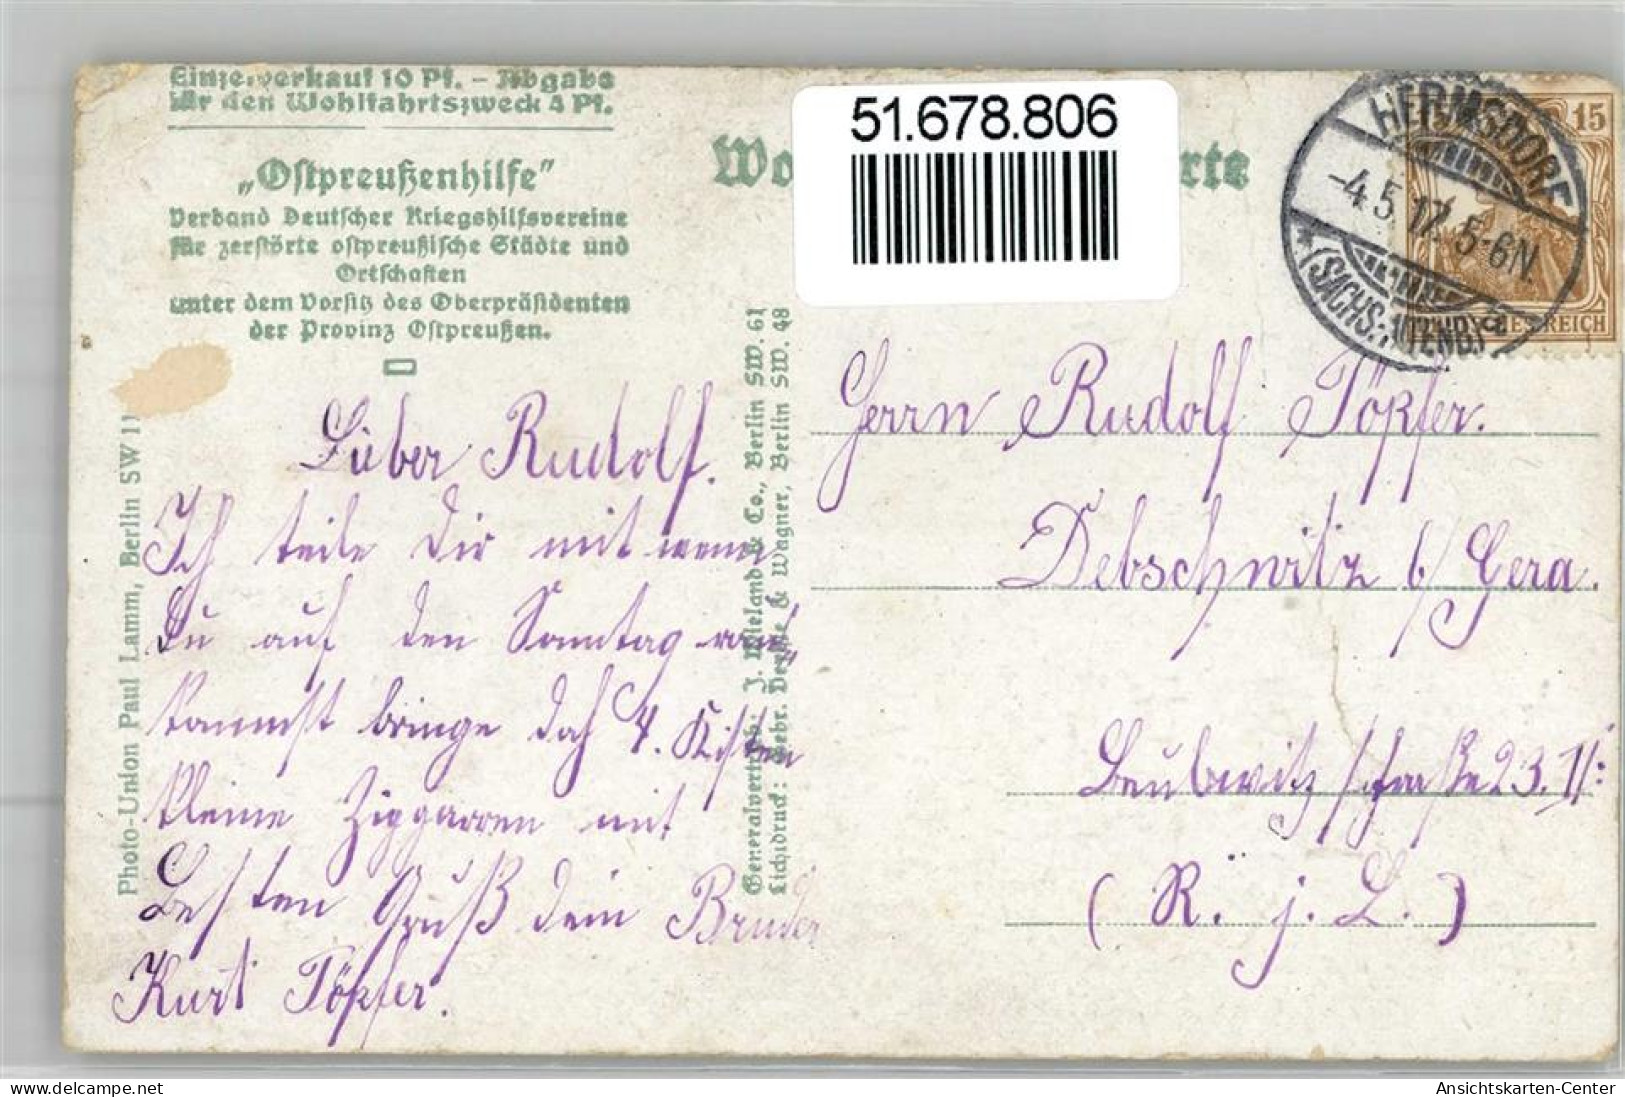 Einzelverkauf 10 Pf. – Abgabe
für den Wohlfahrtszweck 4 Pf.
„Ostpreußenhilfe”
Verband Deutscher Kriegshilfsvereine
für zerstörte ostpreußische Städte und
Ortschaften
unter dem Vorsitz des Oberpräsidenten
der Provinz Ostpreußen.
Wo
rte
51.678.806
HERMSDORF
-4.5.17. 5-6N.
* (SACHS.-ALTENB.) a
15
DEUTSCHES REICH
Photo-Union Paul Lamm, Berlin SW 11
Generalvertrieb: J. Wieland & Co., Berlin SW. 61
Lichtdruck: Gebr. & Wagner, Berlin SW. 48
Lieber Rudolf.
Ich teile Dir mit wenn
Du auf den Sonntag
kommst bringe doch 4. Kisten
kleine Ziggarren mit
Besten Gruß dein Bruder
Kurt Töpfer.
Herrn Rudolf Töpfer.
Debschwitz b/ Gera.
Beulwitzstraße 23. II:
(R. j. L.)
Ansichtskarten-Center